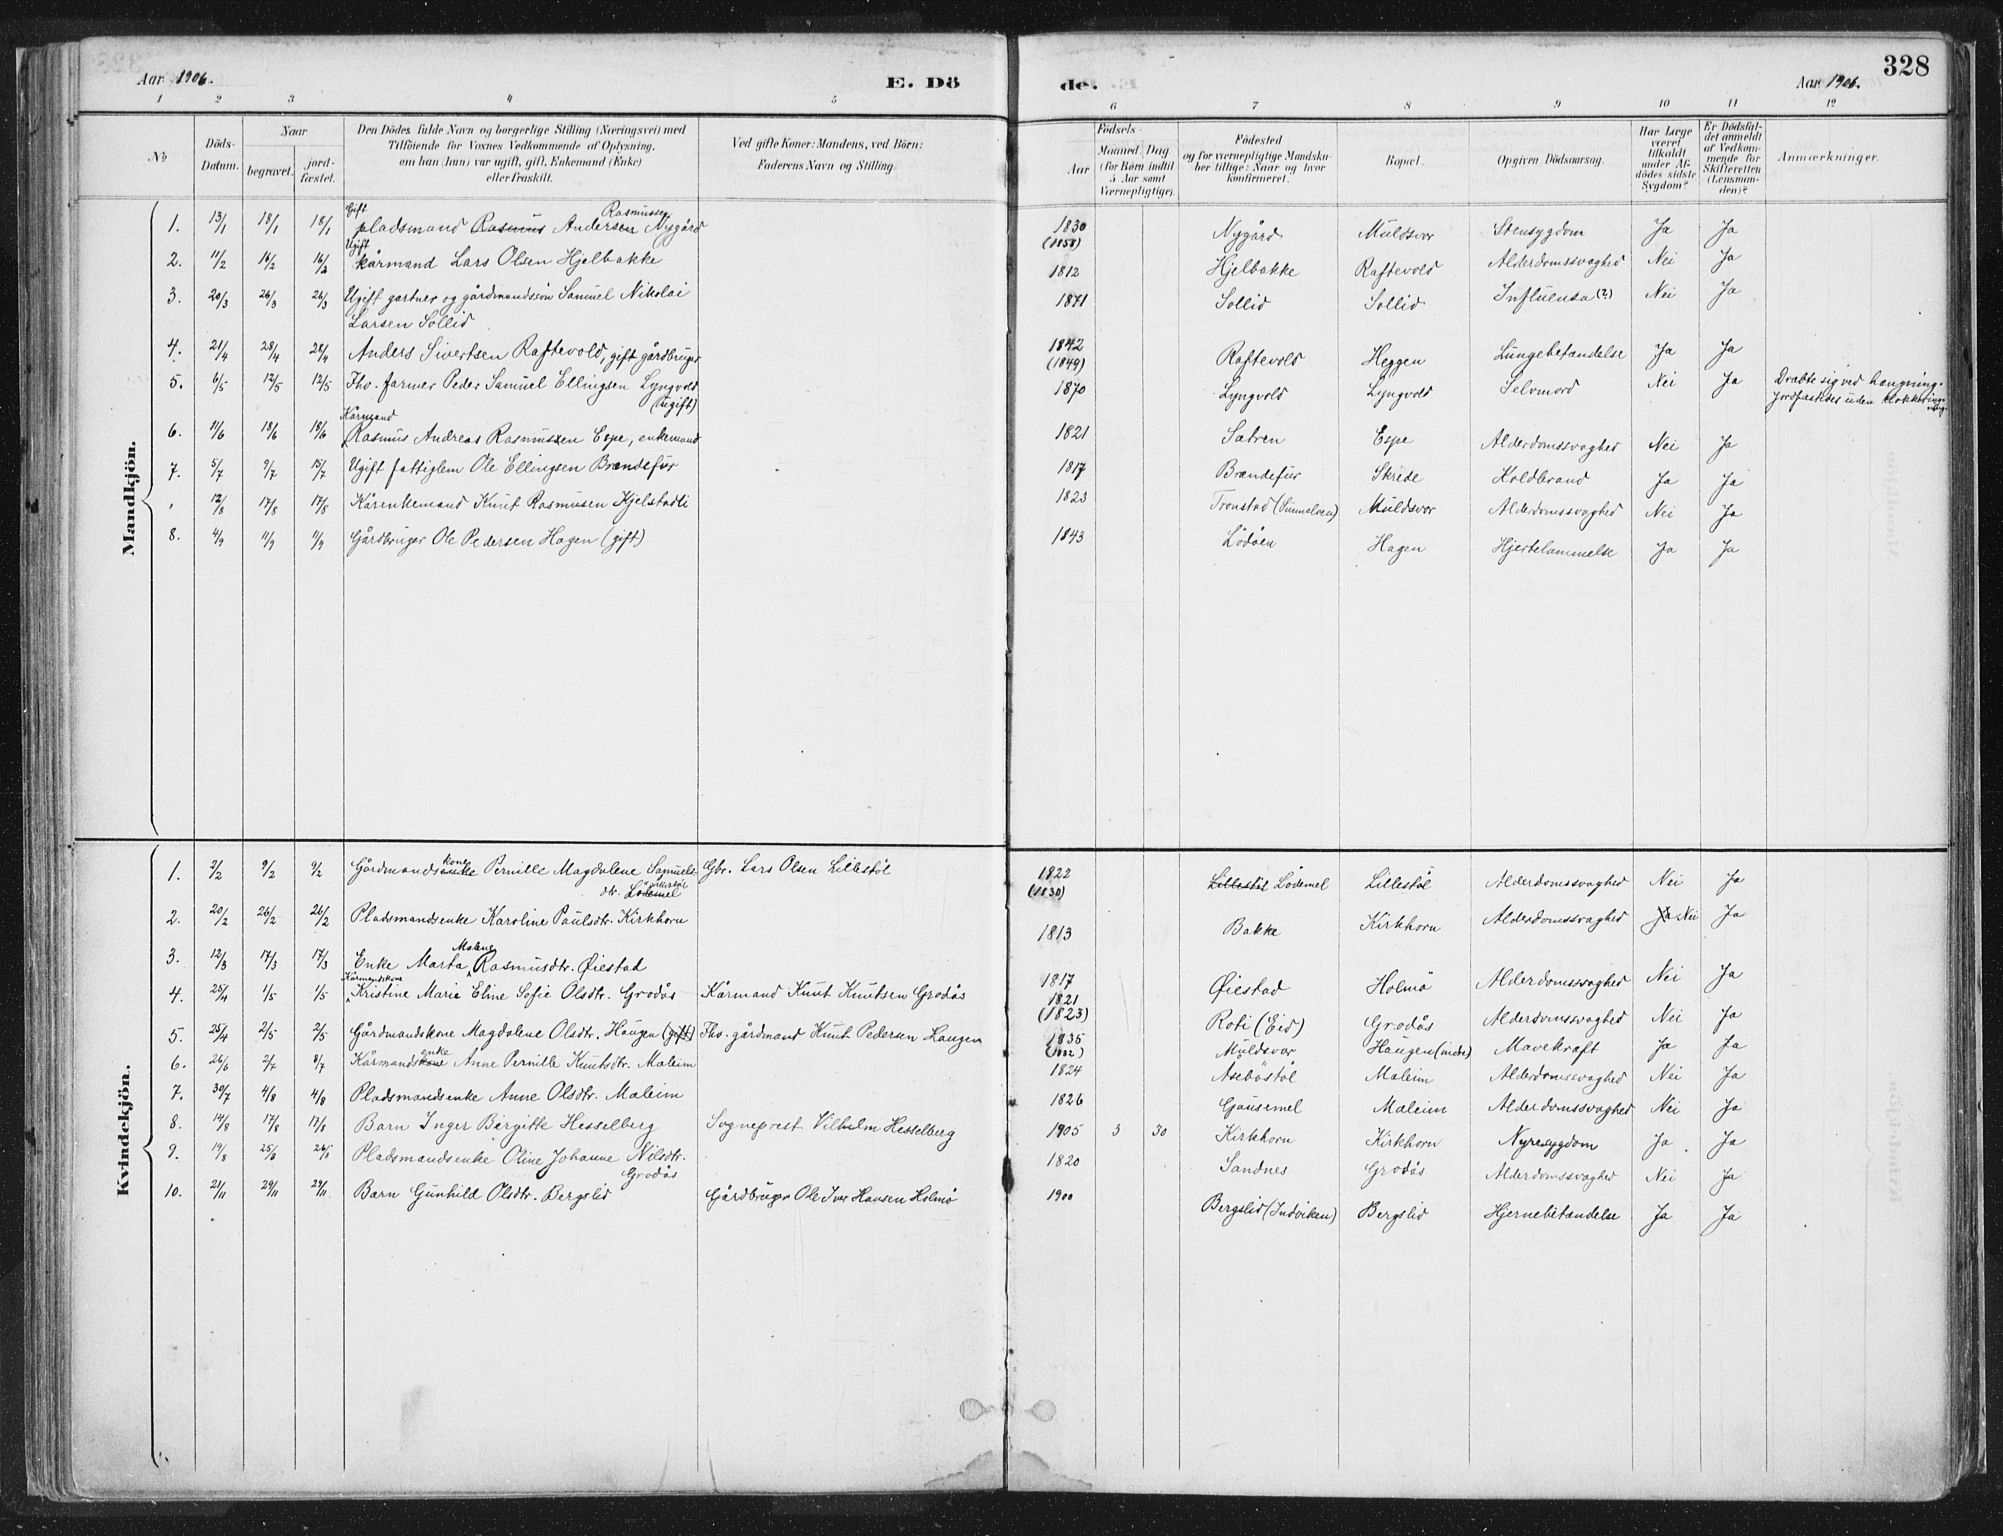 Aar 1906.
E. Dö
de.
Aar 1906.
328
1 2 3 4 5 6 7 8 9 10 11 12
No
Döds-Datum.
Naar
begravet.
jord-fæstet.
Den Dödes fulde Navn og borgerlige Stilling (Næringsvei) med
Tilföiende for Voxnes Vedkommende af Oplysning,
om han (hun) var ugift, gift, Enkemand (Enke)
eller fraskilt.
Ved gifte Koner: Mandens, ved Börn:
Faderens Navn og Stilling.
Födsels-
Aar
Maaned. Dag.
(for Börn indtil
5 Aar samt
Værnepligtige).
Födested
og for værnepligtige Mandska-
ber tillige: Naar og hvor
konfirmeret.
Bopæl.
Opgiven Dödsaarsag.
Har Læge
været
tilkaldt
under Af-
dödes sidste
Sygdom?
Er Dödsfal-
det anmeldt
af Vedkom-
mende for
Skifteretten
(Lensman-
den)?
Anmærkninger.
Mandkjön.
1. 13/1 18/1 18/1 Gift pladsmand Rasmus Andersen Rasmussen Nygård 1830 (1858) Nygård Muldsvor Stensygdom Ja Ja
2. 11/2 16/2 16/2 Ugift kårmand Lars Olsen Hjelbakke 1812 Hjelbakke Raftevold Alderdomssvaghed Nei Ja
3. 20/3 26/3 26/3 Ugift gartner og gårdmandssön Samuel Nikolai
Larsen Sollid 1871 Sollid Sollid Influensa (?) Nei Ja
4. 21/4 28/4 28/4 Anders Sivertsen Raftevold, gift gårdbruger 1842 (1849) Raftevold Heggen Lungebetændelse Ja Ja
5. 6/5 12/5 12/5 Fhv. farmer Peder Samuel Ellingsen Lyngvold
(Ugift) 1870 Lyngvold Lyngvold Selvmord Nei Ja Dræbte sig ved hængning.
Jordfæstedes uden klokkeringning
6. 11/6 18/6 18/6 Kårmand Rasmus Andreas Rasmussen Espe, enkemand 1821 Sætren Espe Alderdomssvaghed Nei Ja
7. 5/7 9/7 15/7 Ugift fattiglem Ole Ellingsen Brændefur 1817 Brændefur Skrede Koldbrand Ja Ja
" 12/8 17/8 17/8 Kårenkemand Knut Rasmusen Kjelstadli 1823 Tronstad (Sunnelven) Muldsvor Alderdomssvaghed Nei Ja
8. 4/9 11/9 11/9 Gårdbruger Ole Pedersen Hagen (gift) 1843 Lødøen Hagen Hjertelammelse Ja Ja
Kvindekjön.
1. 2/2 9/2 9/2 Gårdmandsenke kone Pernille Magdalene Samuels-
dtr. Lødemel Lillestøl Gbr. Lars Olsen Lillestøl 1822 (1830) Lillestøl Lødemel Lillestøl Alderdomssvaghed Nei Ja
2. 20/2 26/2 26/2 Pladsmandsenke Karoline Paulsdtr. Kirkhorn 1813 Bakke Kirkhorn Alderdomssvaghed Ja Nei Ja
3. 12/3 17/3 17/3 Enke Marta Malene Rasmusdtr. Øiestad 1817 Øiestad Holmø Alderdomssvaghed Nei Ja
4. 25/4 1/5 1/5 Kårmandskone Kristine Marie Eline Sofie Olsdtr. Grodås Kårmand Knut Knutsen Grodås 1821 (1823) Roti (Eid) Grodås Alderdomssvaghed Nei Ja
5. 25/4 2/5 2/5 Gårdmandskone Magdalene Olsdtr. Haugen (gift) Fhv. gårdmand Knut Pedersen Haugen 1835 (1832) Muldsvor Haugen (indre) Mavekræft Ja Ja
6. 26/6 2/7 8/7 Kårmandskone enke Anne Pernille Knutsdtr. Maleim 1824 Åsebøstøl Maleim Alderdomssvaghed Nei Ja
7. 30/7 4/8 4/8 Pladsmandsenke Anne Olsdtr. Maleim 1826 Gausemel Maleim Alderdomssvaghed Nei Ja
8. 14/8 17/8 17/8 Barn Inger Birgitte Hesselberg Sogneprest Vilhelm Hesselberg 1905 3 30 Kirkhorn Kirkhorn Nyresygdom Ja Ja
9. 19/8 25/8 26/8 Pladsmandsenke Oline Johanne Nilsdtr.
Grodås 1820 Sandnes Grodås Alderdomssvaghed Nei Ja
10. 21/11 29/11 29/11 Barn Gunhild Olsdtr. Bergslid Gårdbruger Ole Iver Hansen Holmø 1900 Bergslid (Indviken) Bergslid Hjernebetændelse Ja Ja